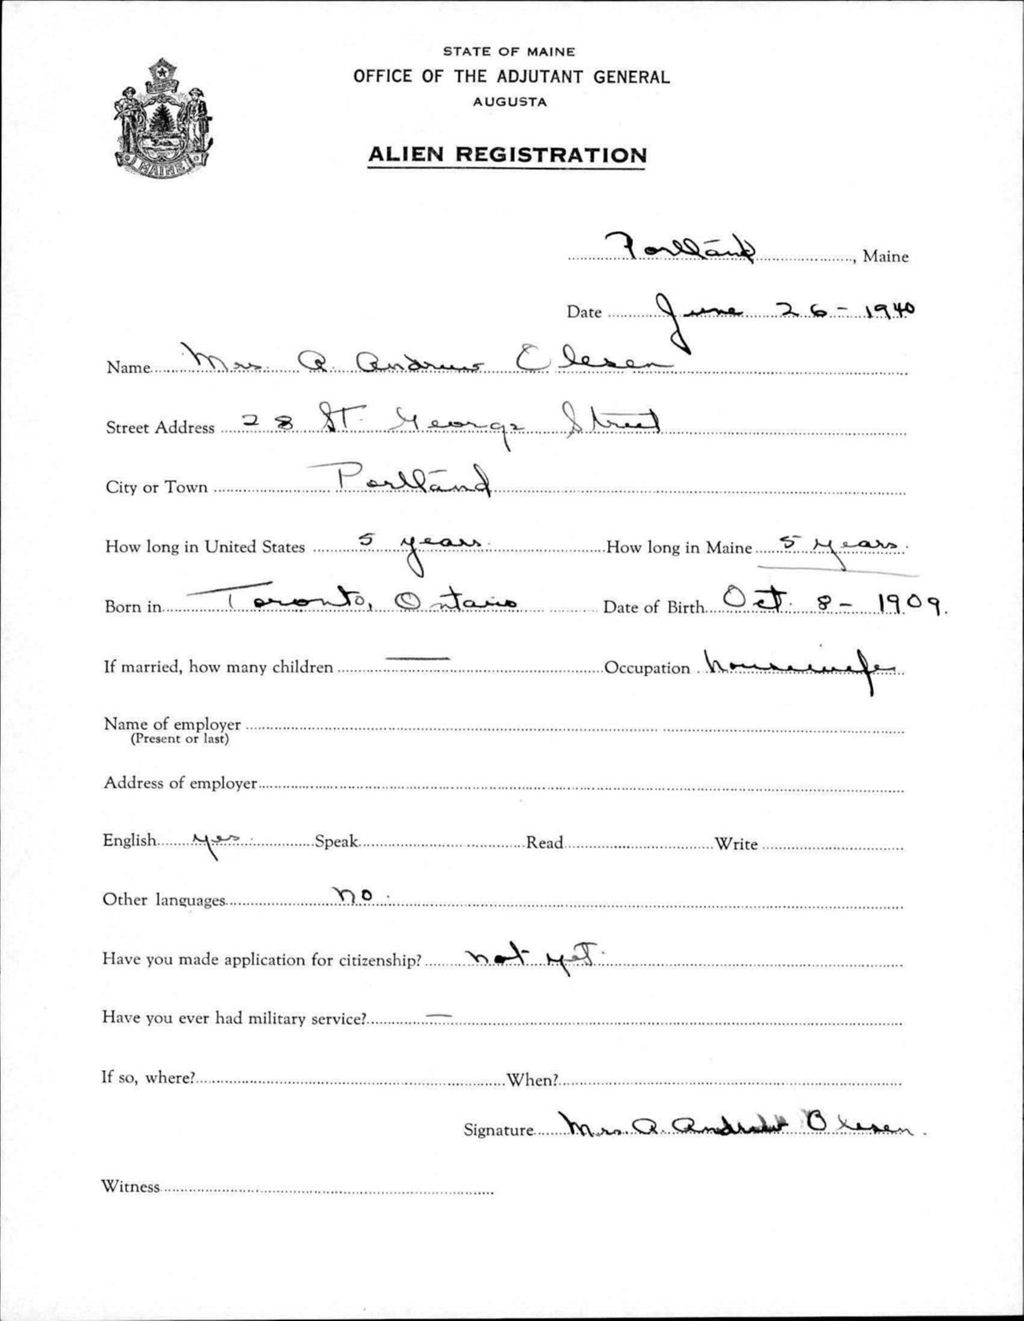 STATE OF MAINE
OFFICE OF THE ADJUTANT GENERAL
AUGUSTA
MAINE
ALIEN REGISTRATION
Portland, Maine
Date June 26 - 1940
Name Mrs. A. Andrew Olesen
Street Address 28 St. George Street
City or Town Portland
How long in United States 5 years. How long in Maine 5 years.
Born in Toronto, Ontario Date of Birth Oct. 8 - 1909.
If married, how many children — Occupation housewife
Name of employer
(Present or last)
Address of employer
English yes. Speak Read Write
Other languages no.
Have you made application for citizenship? not yet.
Have you ever had military service? —
If so, where? When?
Signature Mrs. A. Andrew Olesen.
Witness